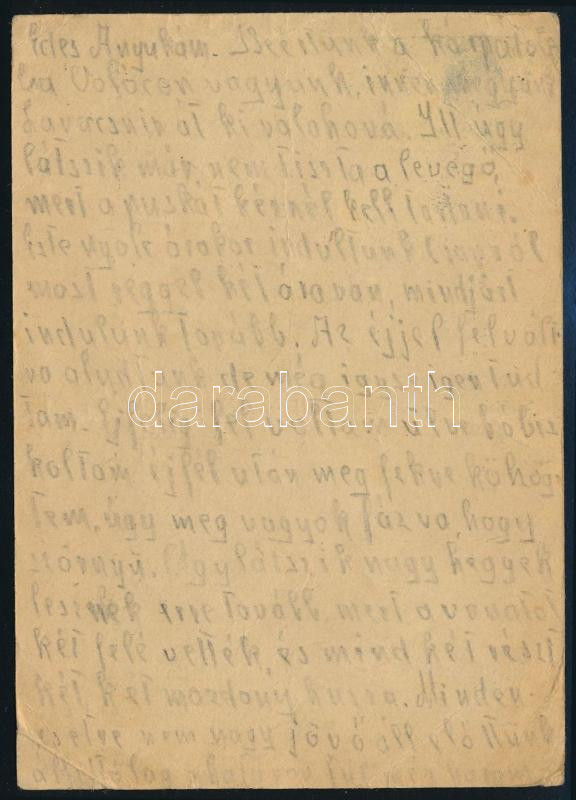 Édes Anyukám. Beértünk a kárpátok
ba Volócon vagyunk, innen megyünk
Lavocsnin át ki valahová. Itt úgy
látszik már nem tiszta a levegő,
mert a puskát kéznél kell tartani.
Este nyolc órakor indultunk
most reggel két óra van, mindjárt
indulunk tovább. Az éjjel felvált
va aludtunk de még igy sem tud
tam. Éjfélig fent voltam
koltam éjfél után meg fekve köhög
tem, úgy meg vagyok fázva, hogy
szörnyű. Úgy látszik nagy hegyek
lesznek erre tovább mert a vonatot
két felé vették, és mind két részt
két két mozdony huzza. Minden
esetre nem nagy jövő áll előttünk
állitólag
darabanth